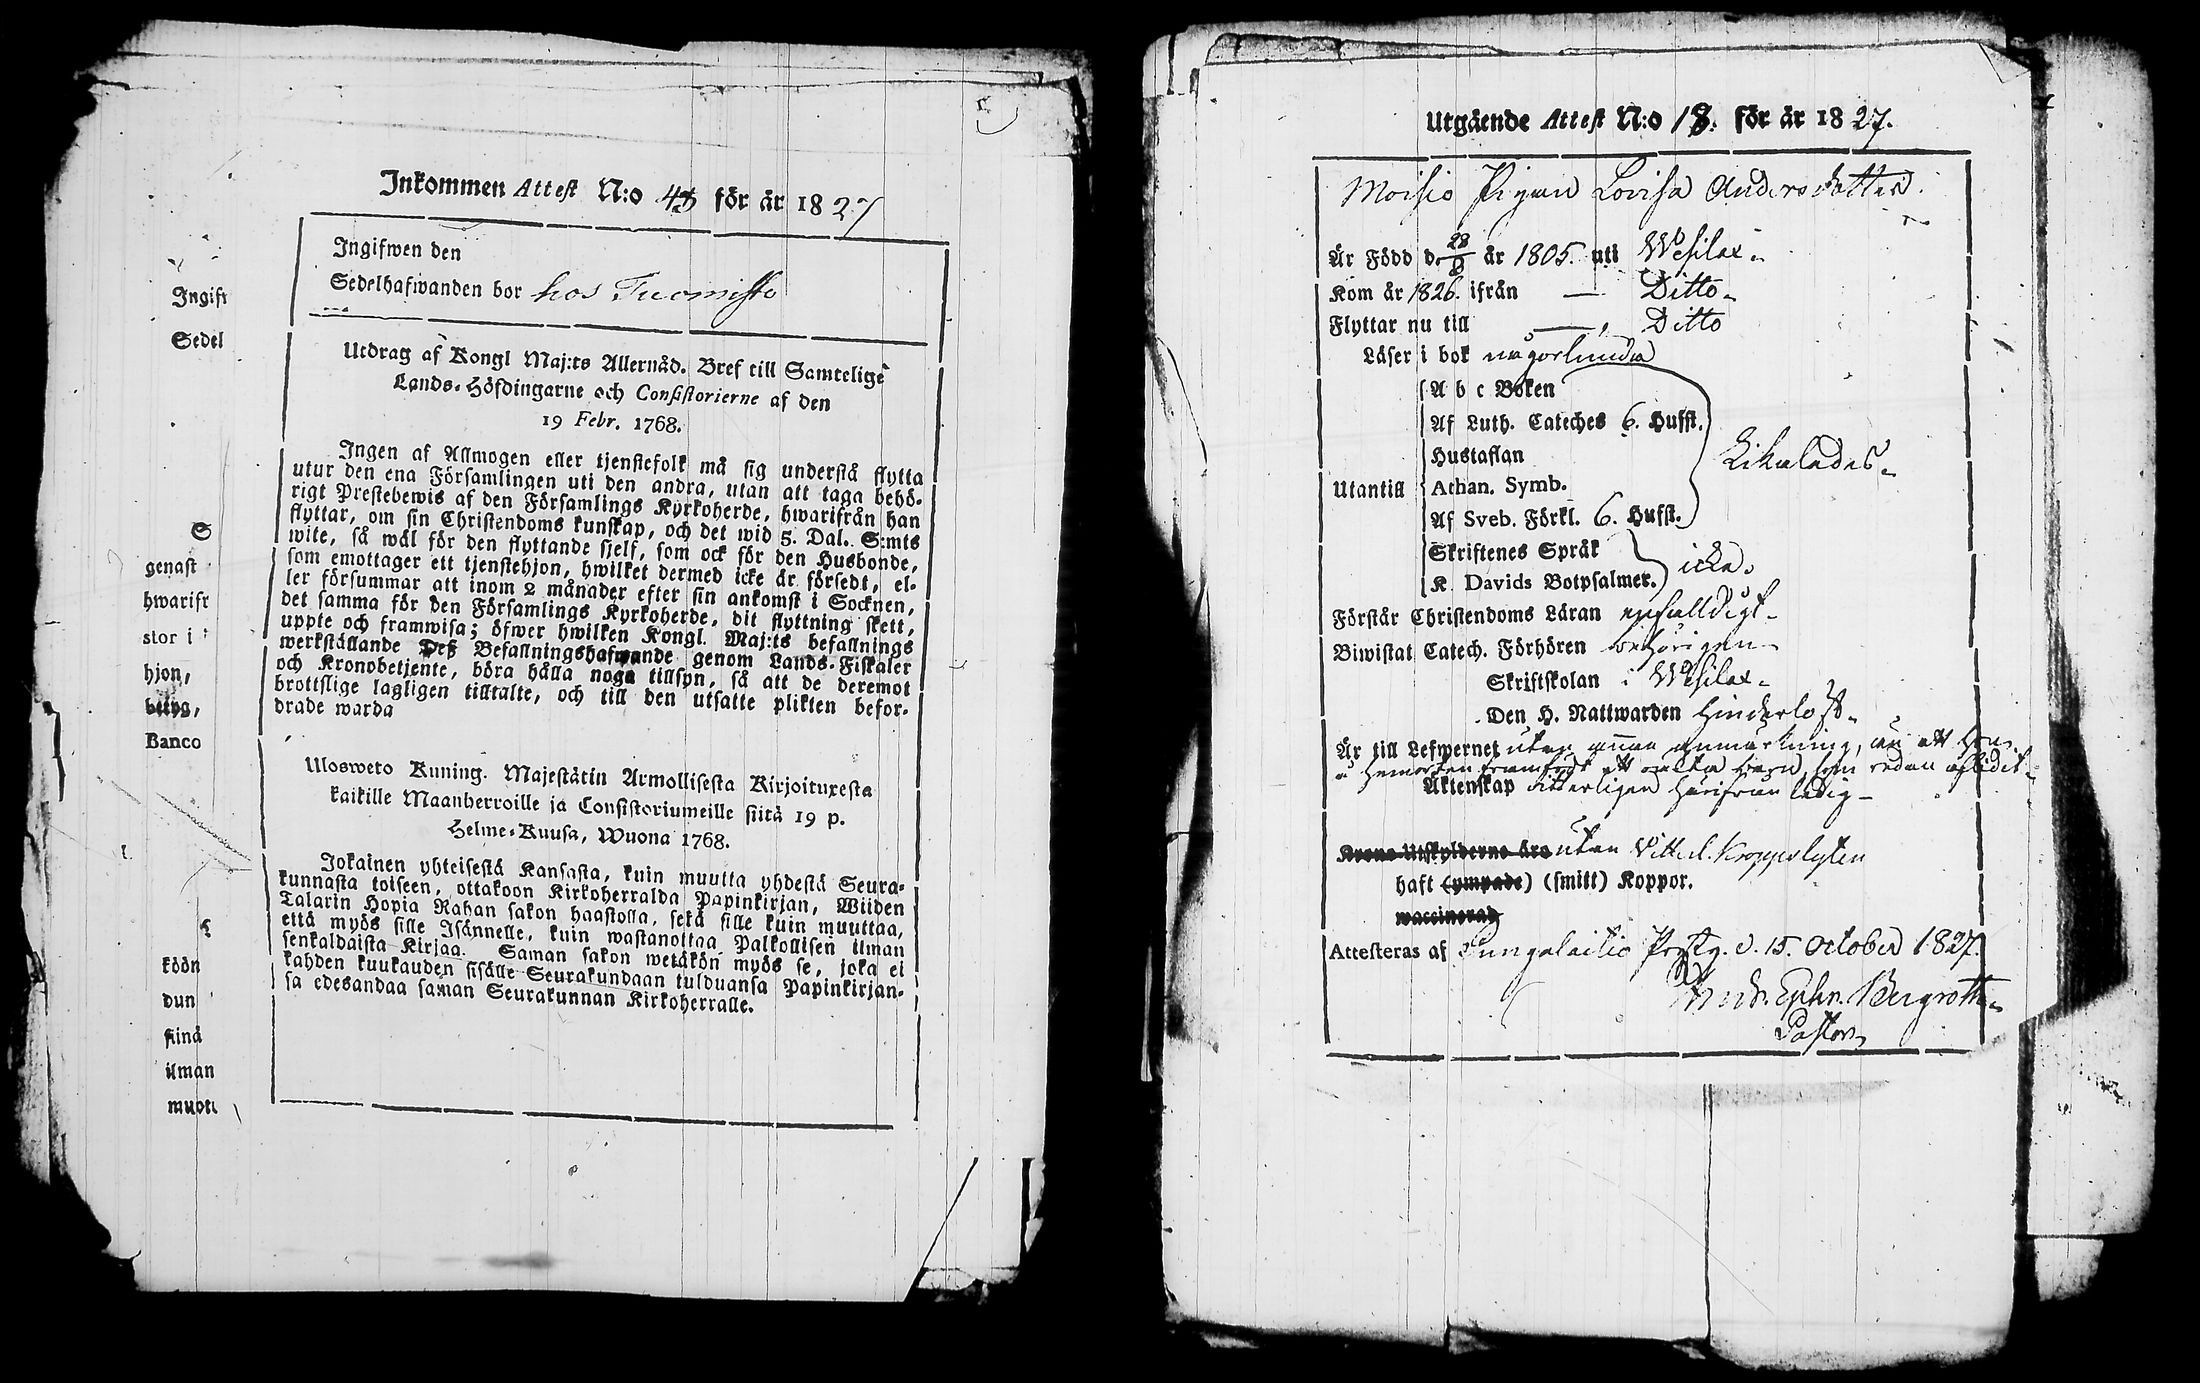 Inkommen Attest N:o 45 för år 1827
Ingifwen den
Sedelhafwanden bor hos Tuomisto
Utdrag af Kongl Maj:ts Allernåd. Bref till Samtelige
Lands-Höfdingarne och Consistorierne af den
19 Febr. 1768.
Ingen af Allmogen eller tjenstefolk må sig understå flytta
utur den ena Församlingen uti den andra, utan att taga behö-
rigt Prestebewis af den Församlings Kyrkoherde, hwarifrån han
flyttar, om sin Christendoms kunskap, och det wid 5. Dal. S:mts
wite, så wäl för den flyttande sjelf, som ock för den Husbonde,
som emottager ett tjenstehjon, hwilket dermed icke är försedt, el-
ler försummar att inom 2 månader efter sin ankomst i Socknen,
det samma för den Församlings Kyrkoherde, dit flyttning skett,
uppte och framwisa; öfwer hwilken Kongl. Maj:ts befallnings
werkställande Deß Befallningshafwande genom Lands-Fiskaler
och Kronobetjente, böra hålla noga tillsyn, så att de deremot
brottslige lagligen tilltalte, och till den utsatte plikten befor-
drade warda
Ulosweto Kuning. Majestätin Armollisesta Kirjoituxesta
kaikille Maanherroille ja Consistoriumeille siitä 19 p.
Helme-Kuusa, Wuona 1768.
Jokainen yhteisestä Kansasta, kuin muutta yhdestä Seura-
kunnasta toiseen, ottakoon Kirkoherralda Papinkirjan, Wiiden
Talarin Hopia Rahan sakon haastolla, sekä sille kuin muuttaa,
että myös sille Isännelle, kuin wastanottaa Palkollisen ilman
senkaldaista Kirjaa. Saman sakon wetäkön myös se, joka ei
kahden kuukauden sisälle Seurakundaan tulduansa Papinkirjan-
sa edesandaa saman Seurakunnan Kirkoherralle.
Ingift
Sedel
S
genast
hwarifr
stor i
hjon,
betyg,
Banco
köön
dun
siinä
ilman
muott
Utgående Attest N:o 18. för år 1827.
Moisio Pigan Lovisa Andersdotter.
Är Född d. 28/8 år 1805. uti Wesilax
Kom år 1826. ifrån — Ditto
Flyttar nu till — Ditto
Läser i bok någorlunda
A b c Boken
Af Luth. Cateches 6. Hufst.
Hustaflan
Utantill Athan. Symb.
Likaledes
Af Sveb. Förkl. 6. Hufst.
Skriftenes Språk
K. Davids Botpsalmer. icke.
Förstår Christendoms Läran enfalldigt
Biwistat Catech. Förhören behörigen
Skriftskolan i Wesilax
Den H. Nattwarden hinderlöst
Är till Lefwernet utan annan anmärkning, än att Hon
framfödt ett oäkta barn, som redan aflidit
Äktenskap härifrån ledig
Krono Utskylderne äro utan Vitterl. Kroppslyten
haft (ympade) (smitt) Koppor.
waccinerad
Attesteras af Pungalaitio Prestg. d. 15. October 1827.
Andr. Ephr. Bergroth
Pastor